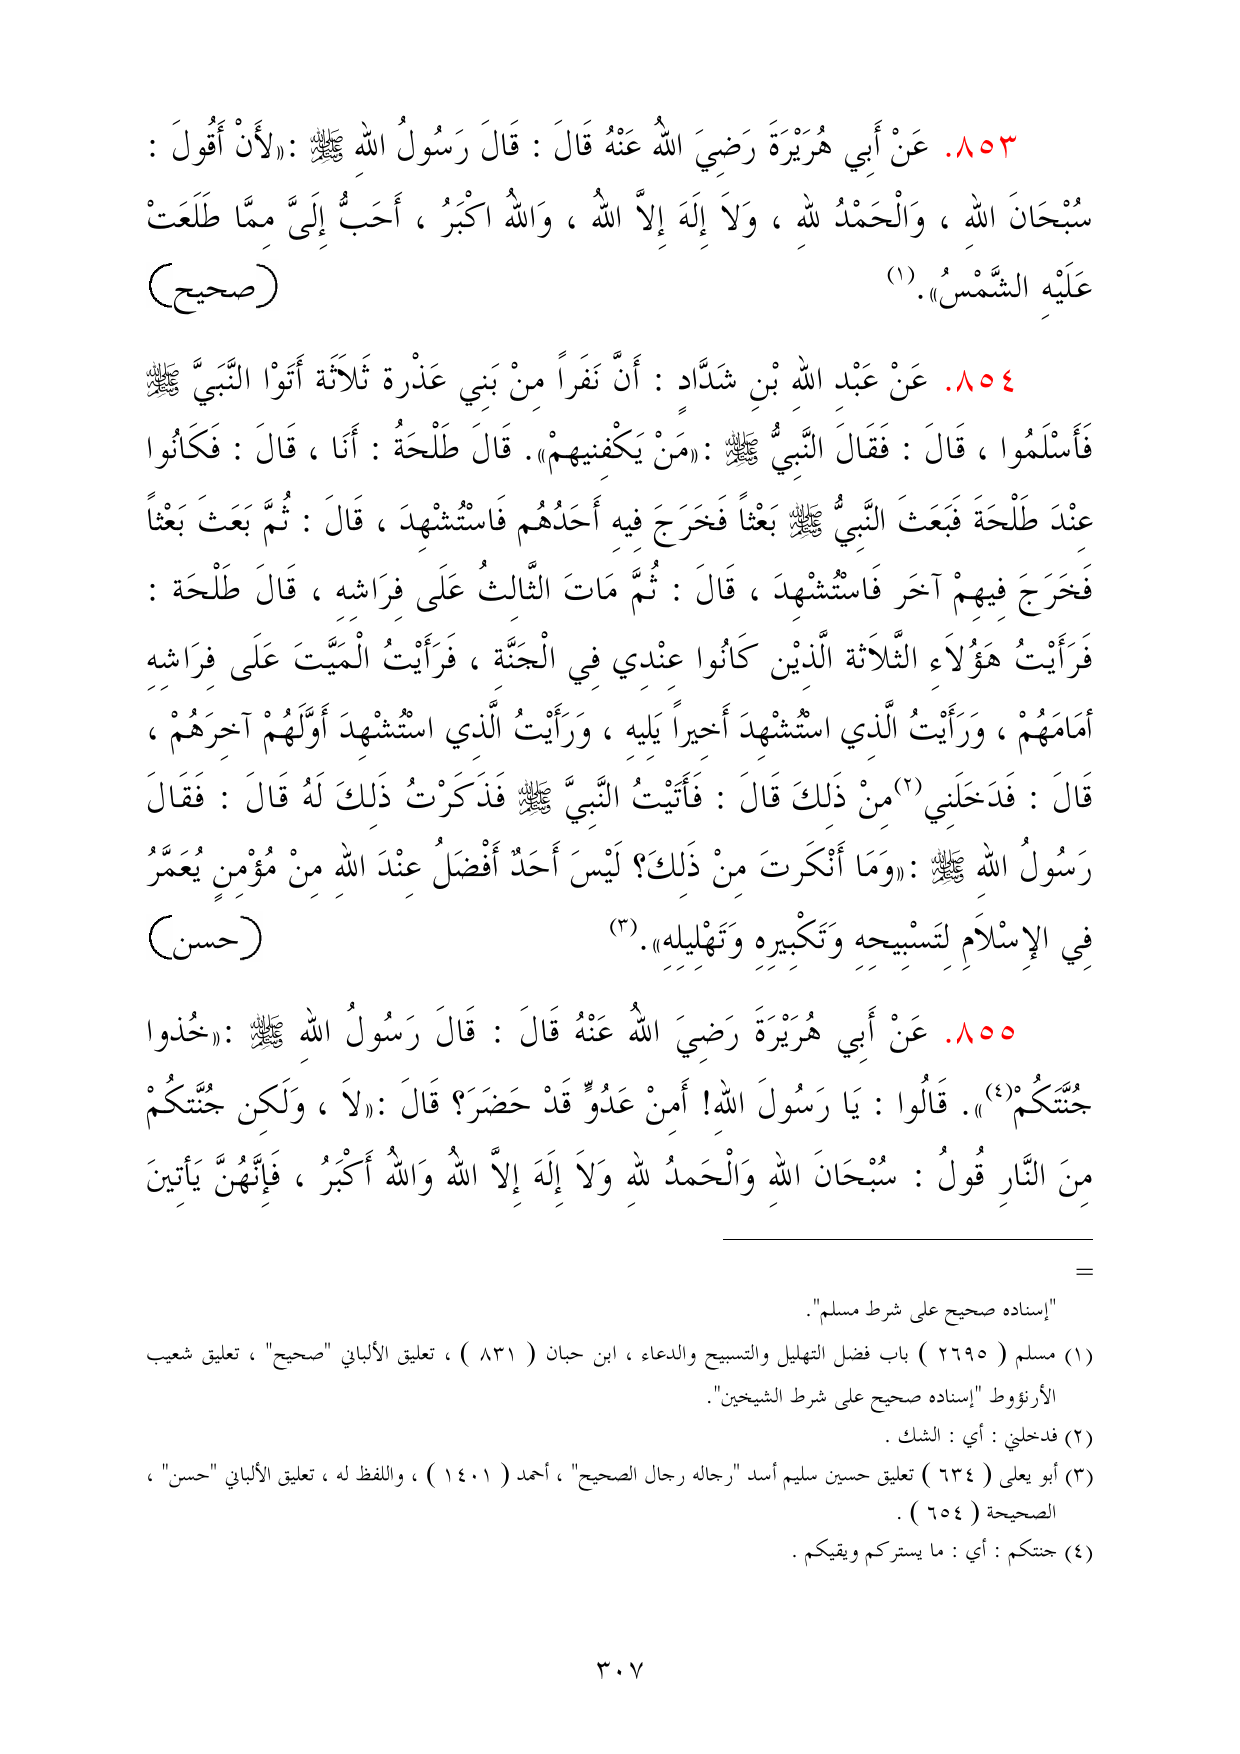 ٨٥٣. عَنْ أَبِي هُرَيْرَةَ رَضِيَ اللهُ عَنْهُ قَالَ : قَالَ رَسُولُ اللهِ ﷺ :«لأَنْ أَقُولَ :
سُبْحَانَ اللهِ ، وَالْحَمْدُ للهِ ، وَلاَ إِلَهَ إِلاَّ اللهُ ، وَاللهُ اكْبَرُ ، أَحَبُّ إِلَىَّ مِمَّا طَلَعَتْ
عَلَيْهِ الشَّمْسُ».(١) (صحيح)
٨٥٤. عَنْ عَبْدِ اللهِ بْنِ شَدَّادٍ : أَنَّ نَفَراً مِنْ بَنِي عَذْرة ثَلاَثَة أَتَوْا النَّبَيَّ ﷺ
فَأَسْلَمُوا ، قَالَ : فَقَالَ النَّبِيُّ ﷺ :«مَنْ يَكْفِنِيهِمْ». قَالَ طَلْحَةُ : أَنَا ، قَالَ : فَكَانُوا
عِنْدَ طَلْحَةَ فَبَعَثَ النَّبِيُّ ﷺ بَعْثاً فَخَرَجَ فِيهِ أَحَدُهُم فَاسْتُشْهِدَ ، قَالَ : ثُمَّ بَعَثَ بَعْثاً
فَخَرَجَ فِيهِمْ آخَر فَاسْتُشْهِدَ ، قَالَ : ثُمَّ مَاتَ الثَّالِثُ عَلَى فِرَاشِهِ ، قَالَ طَلْحَة :
فَرَأَيْتُ هَؤُلاَءِ الثَّلاَثة الَّذِيْن كَانُوا عِنْدِي فِي الْجَنَّةِ ، فَرَأَيْتُ الْمَيَّتَ عَلَى فِرَاشِهِ
أمَامَهُمْ ، وَرَأَيْتُ الَّذِي اسْتُشْهِدَ أَخِيراً يَلِيهِ ، وَرَأَيْتُ الَّذِي اسْتُشْهِدَ أَوَّلَهُمْ آخِرَهُمْ ،
قَالَ : فَدَخَلَنِي(٢)مِنْ ذَلِكَ قَالَ : فَأَتَيْتُ النَّبِيَّ ﷺ فَذَكَرْتُ ذَلِكَ لَهُ قَالَ : فَقَالَ
رَسُولُ اللهِ ﷺ :«وَمَا أَنْكَرتَ مِنْ ذَلِكَ؟ لَيْسَ أَحَدٌ أَفْضَلُ عِنْدَ اللهِ مِنْ مُؤْمِنٍ يُعَمَّرُ
فِي الإِسْلاَمِ لِتَسْبِيحِهِ وَتَكْبِيرِهِ وَتَهْلِيلِهِ».(٣) (حسن)
٨٥٥. عَنْ أَبِي هُرَيْرَةَ رَضِيَ اللهُ عَنْهُ قَالَ : قَالَ رَسُولُ اللهِ ﷺ :«خُذوا
جُنَّتَكُمْ(٤)». قَالُوا : يَا رَسُولَ اللهِ! أَمِنْ عَدُوٍّ قَدْ حَضَرَ؟ قَالَ :«لاَ ، وَلَكِن جُنَّتكُمْ
مِنَ النَّارِ قُولُ : سُبْحَانَ اللهِ وَالْحَمدُ للهِ وَلاَ إِلَهَ إِلاَّ اللهُ وَاللهُ أَكْبَرُ ، فَإِنَّهُنَّ يَأتِينَ
=
"إسناده صحيح على شرط مسلم".
(١) مسلم ( ٢٦٩٥ ) باب فضل التهليل والتسبيح والدعاء ، ابن حبان ( ٨٣١ ) ، تعليق الألباني "صحيح" ، تعليق شعيب
الأرنؤوط "إسناده صحيح على شرط الشيخين".
(٢) فدخلني : أي : الشك .
(٣) أبو يعلى ( ٦٣٤ ) تعليق حسين سليم أسد "رجاله رجال الصحيح" ، أحمد ( ١٤٠١ ) ، واللفظ له ، تعليق الألباني "حسن" ،
الصحيحة ( ٦٥٤ ) .
(٤) جنتكم : أي : ما يستركم ويقيكم .
٣٠٧